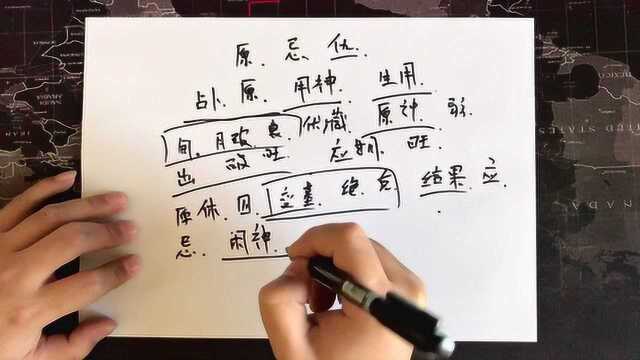 原.忌.仇.
占卜.原.用神.生用.
旬.月破.衰 伏藏 原神.
出 破旺 应期.旺.
原休.囚.空 绝 结果.应.
忌.闲神.
UNITED STATES
NADA